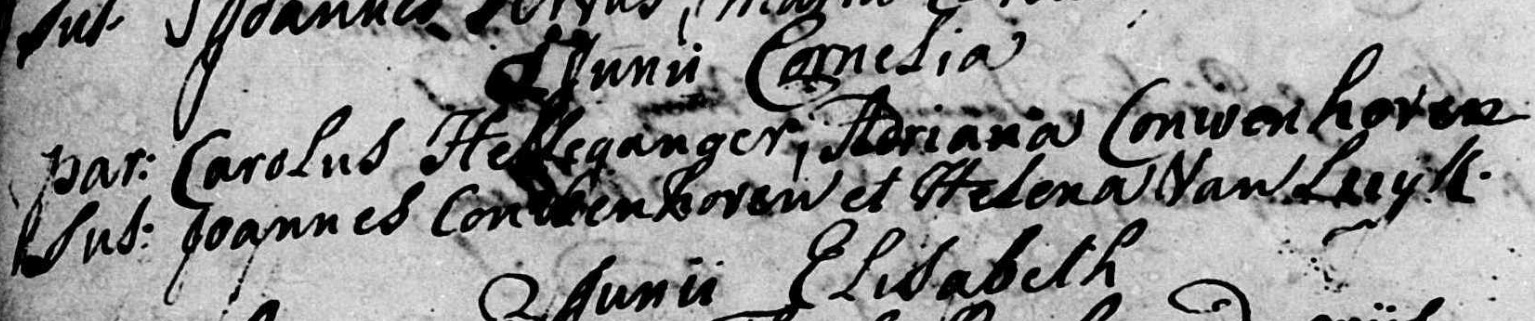 sus Joannes
Junii Cornelia
par: Carolus Helleganger, Adriana Conwenhoven
sus: Joannes Conwenhoven et Helena Van Luyk.
2 Junii Elisabeth